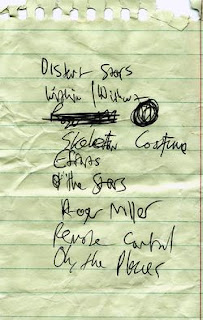 Distant Stars
Virginia /
Skeleton Costume
Effects
of the Stars
Roger Miller
Remote Control
Oh, the Places